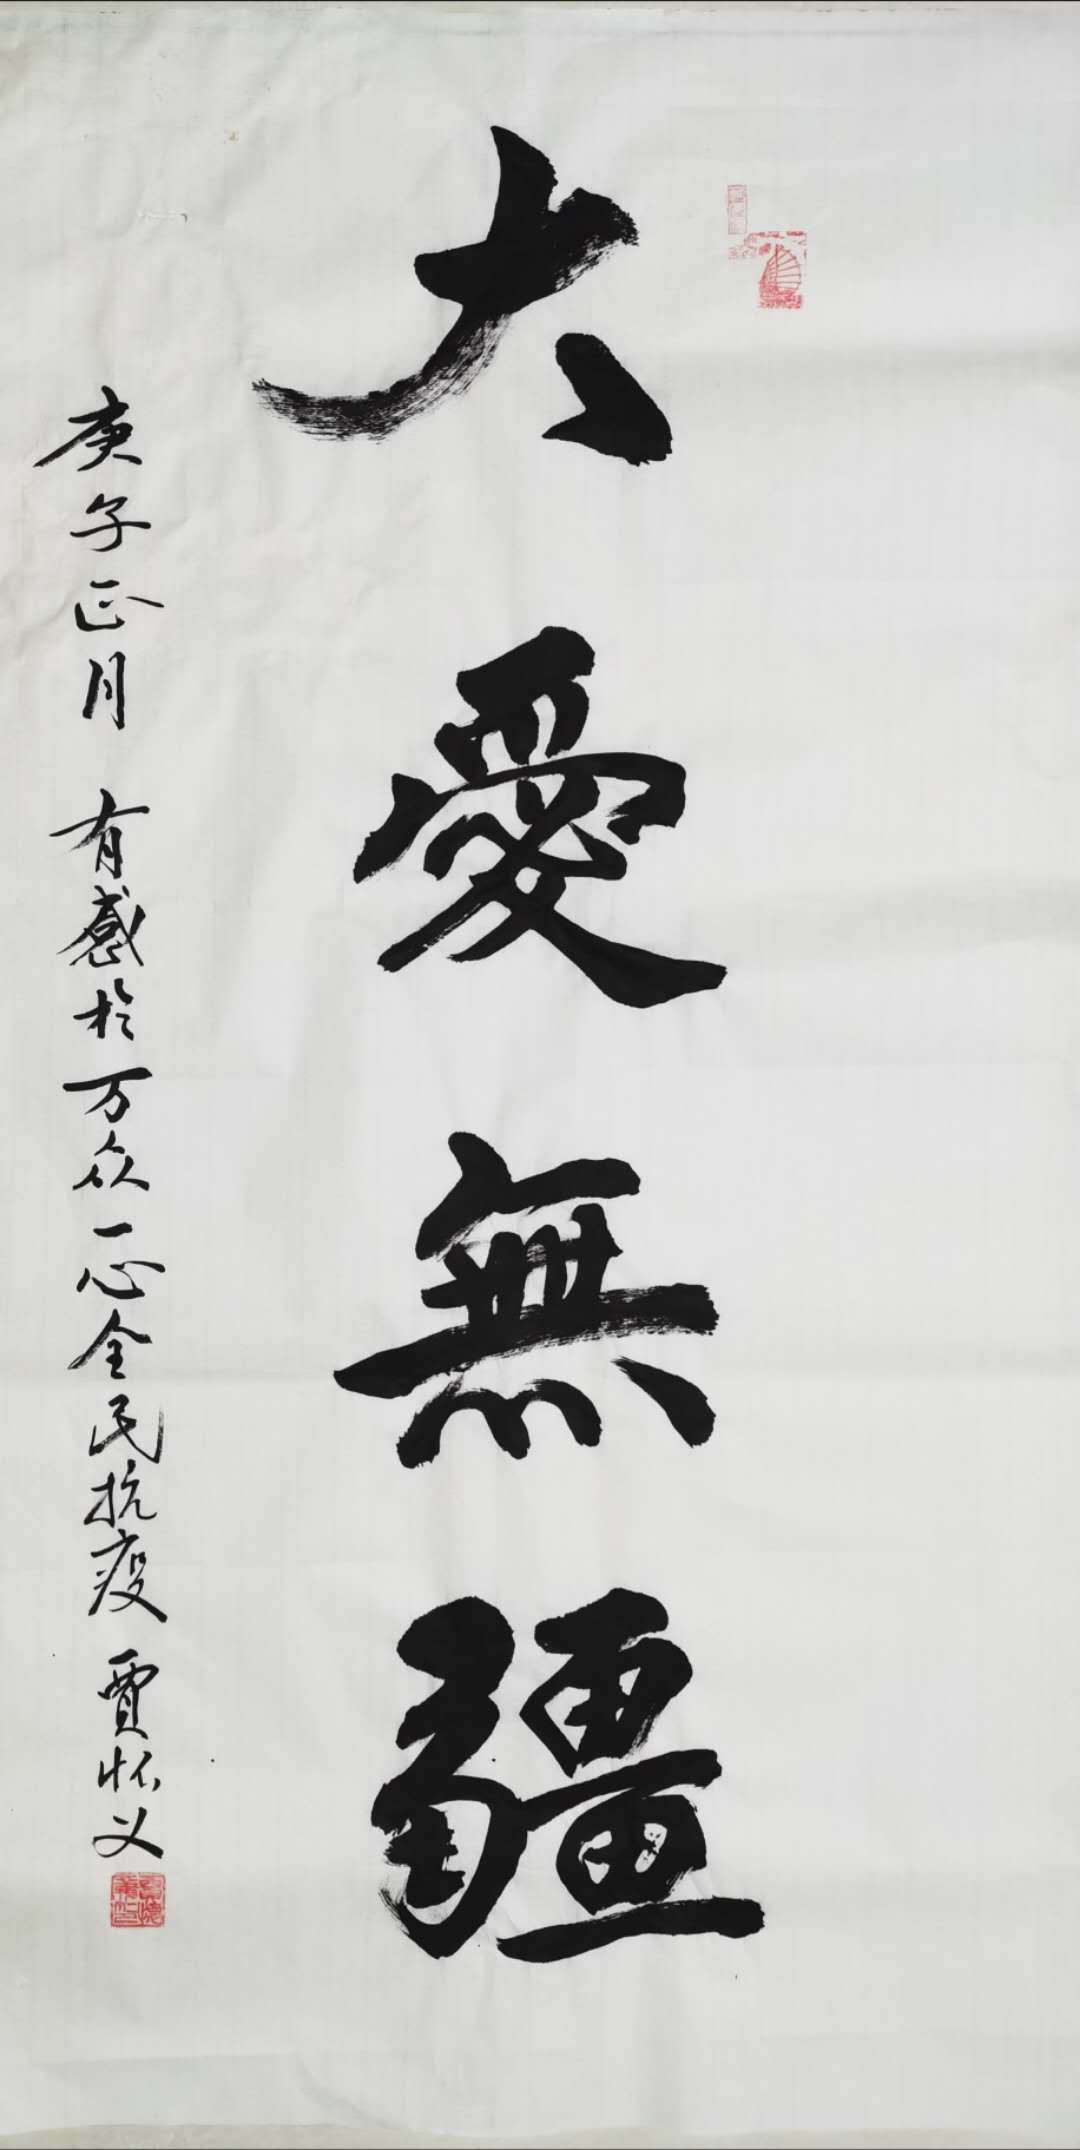 大愛無疆
庚子正月 有感於万众一心全民抗疫 賈怀义